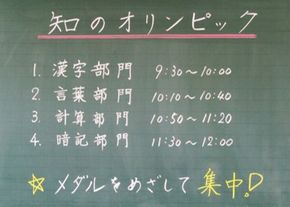 知のオリンピック
1. 漢字部門 9:30～10:00
2. 言葉部門 10:10～10:40
3. 計算部門 10:50～11:20
4. 暗記部門 11:30～12:00
☆ メダルをめざして 集中!